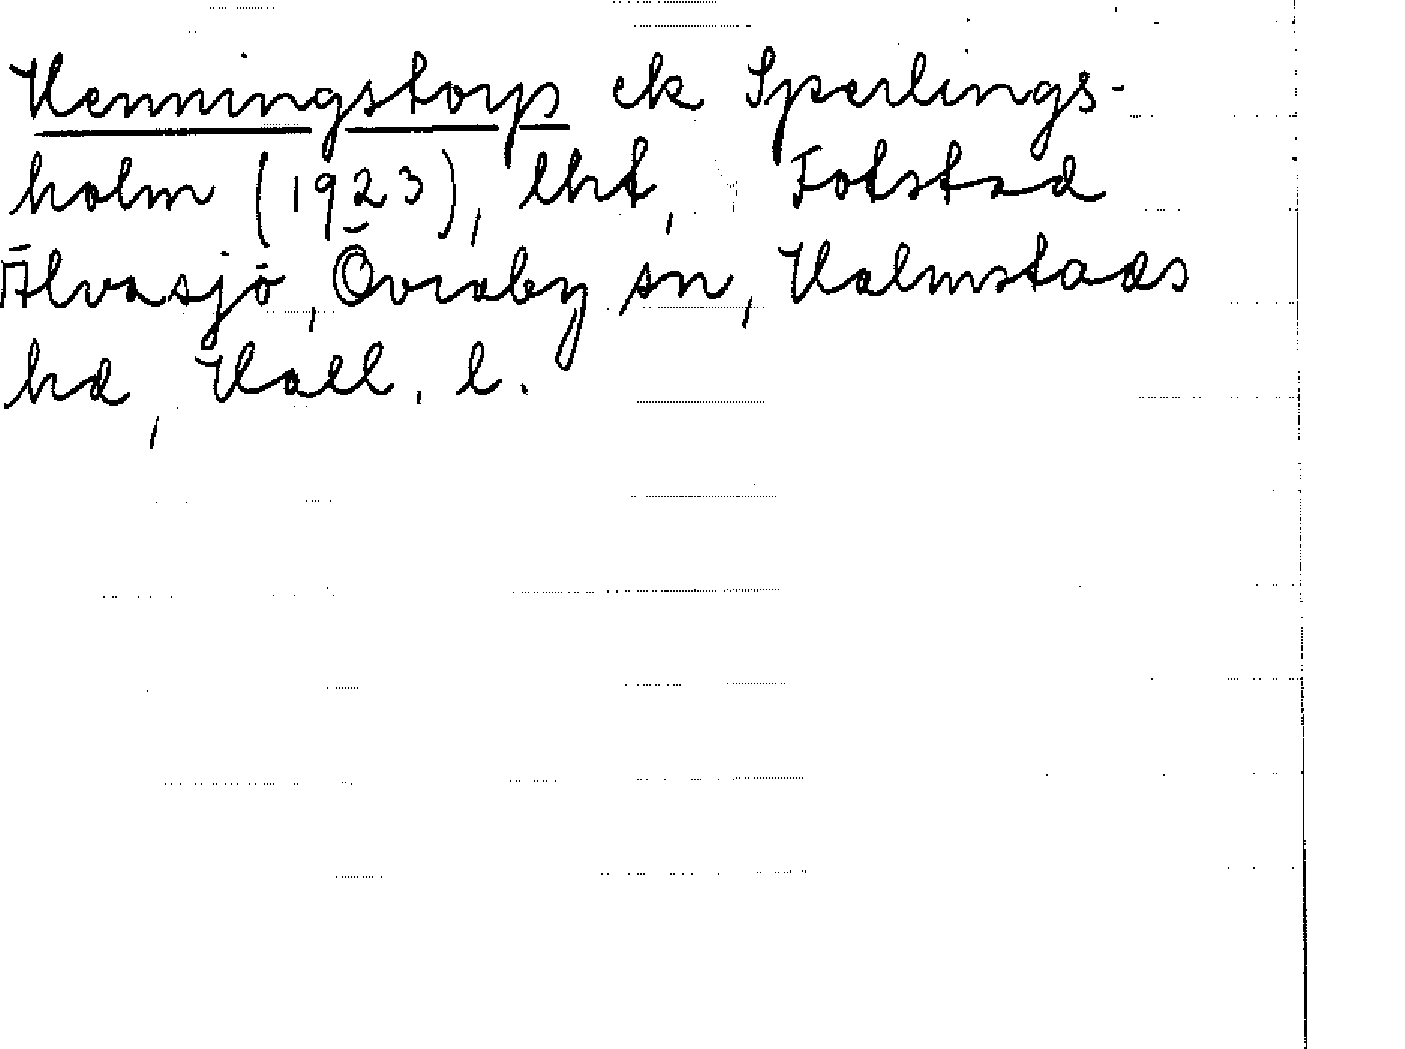 Henningstorp ek Sperlings-
holm (1923), lht, Fotstad
Älvasjö, Övraby sn, Halmstads
hd, Hall. l.